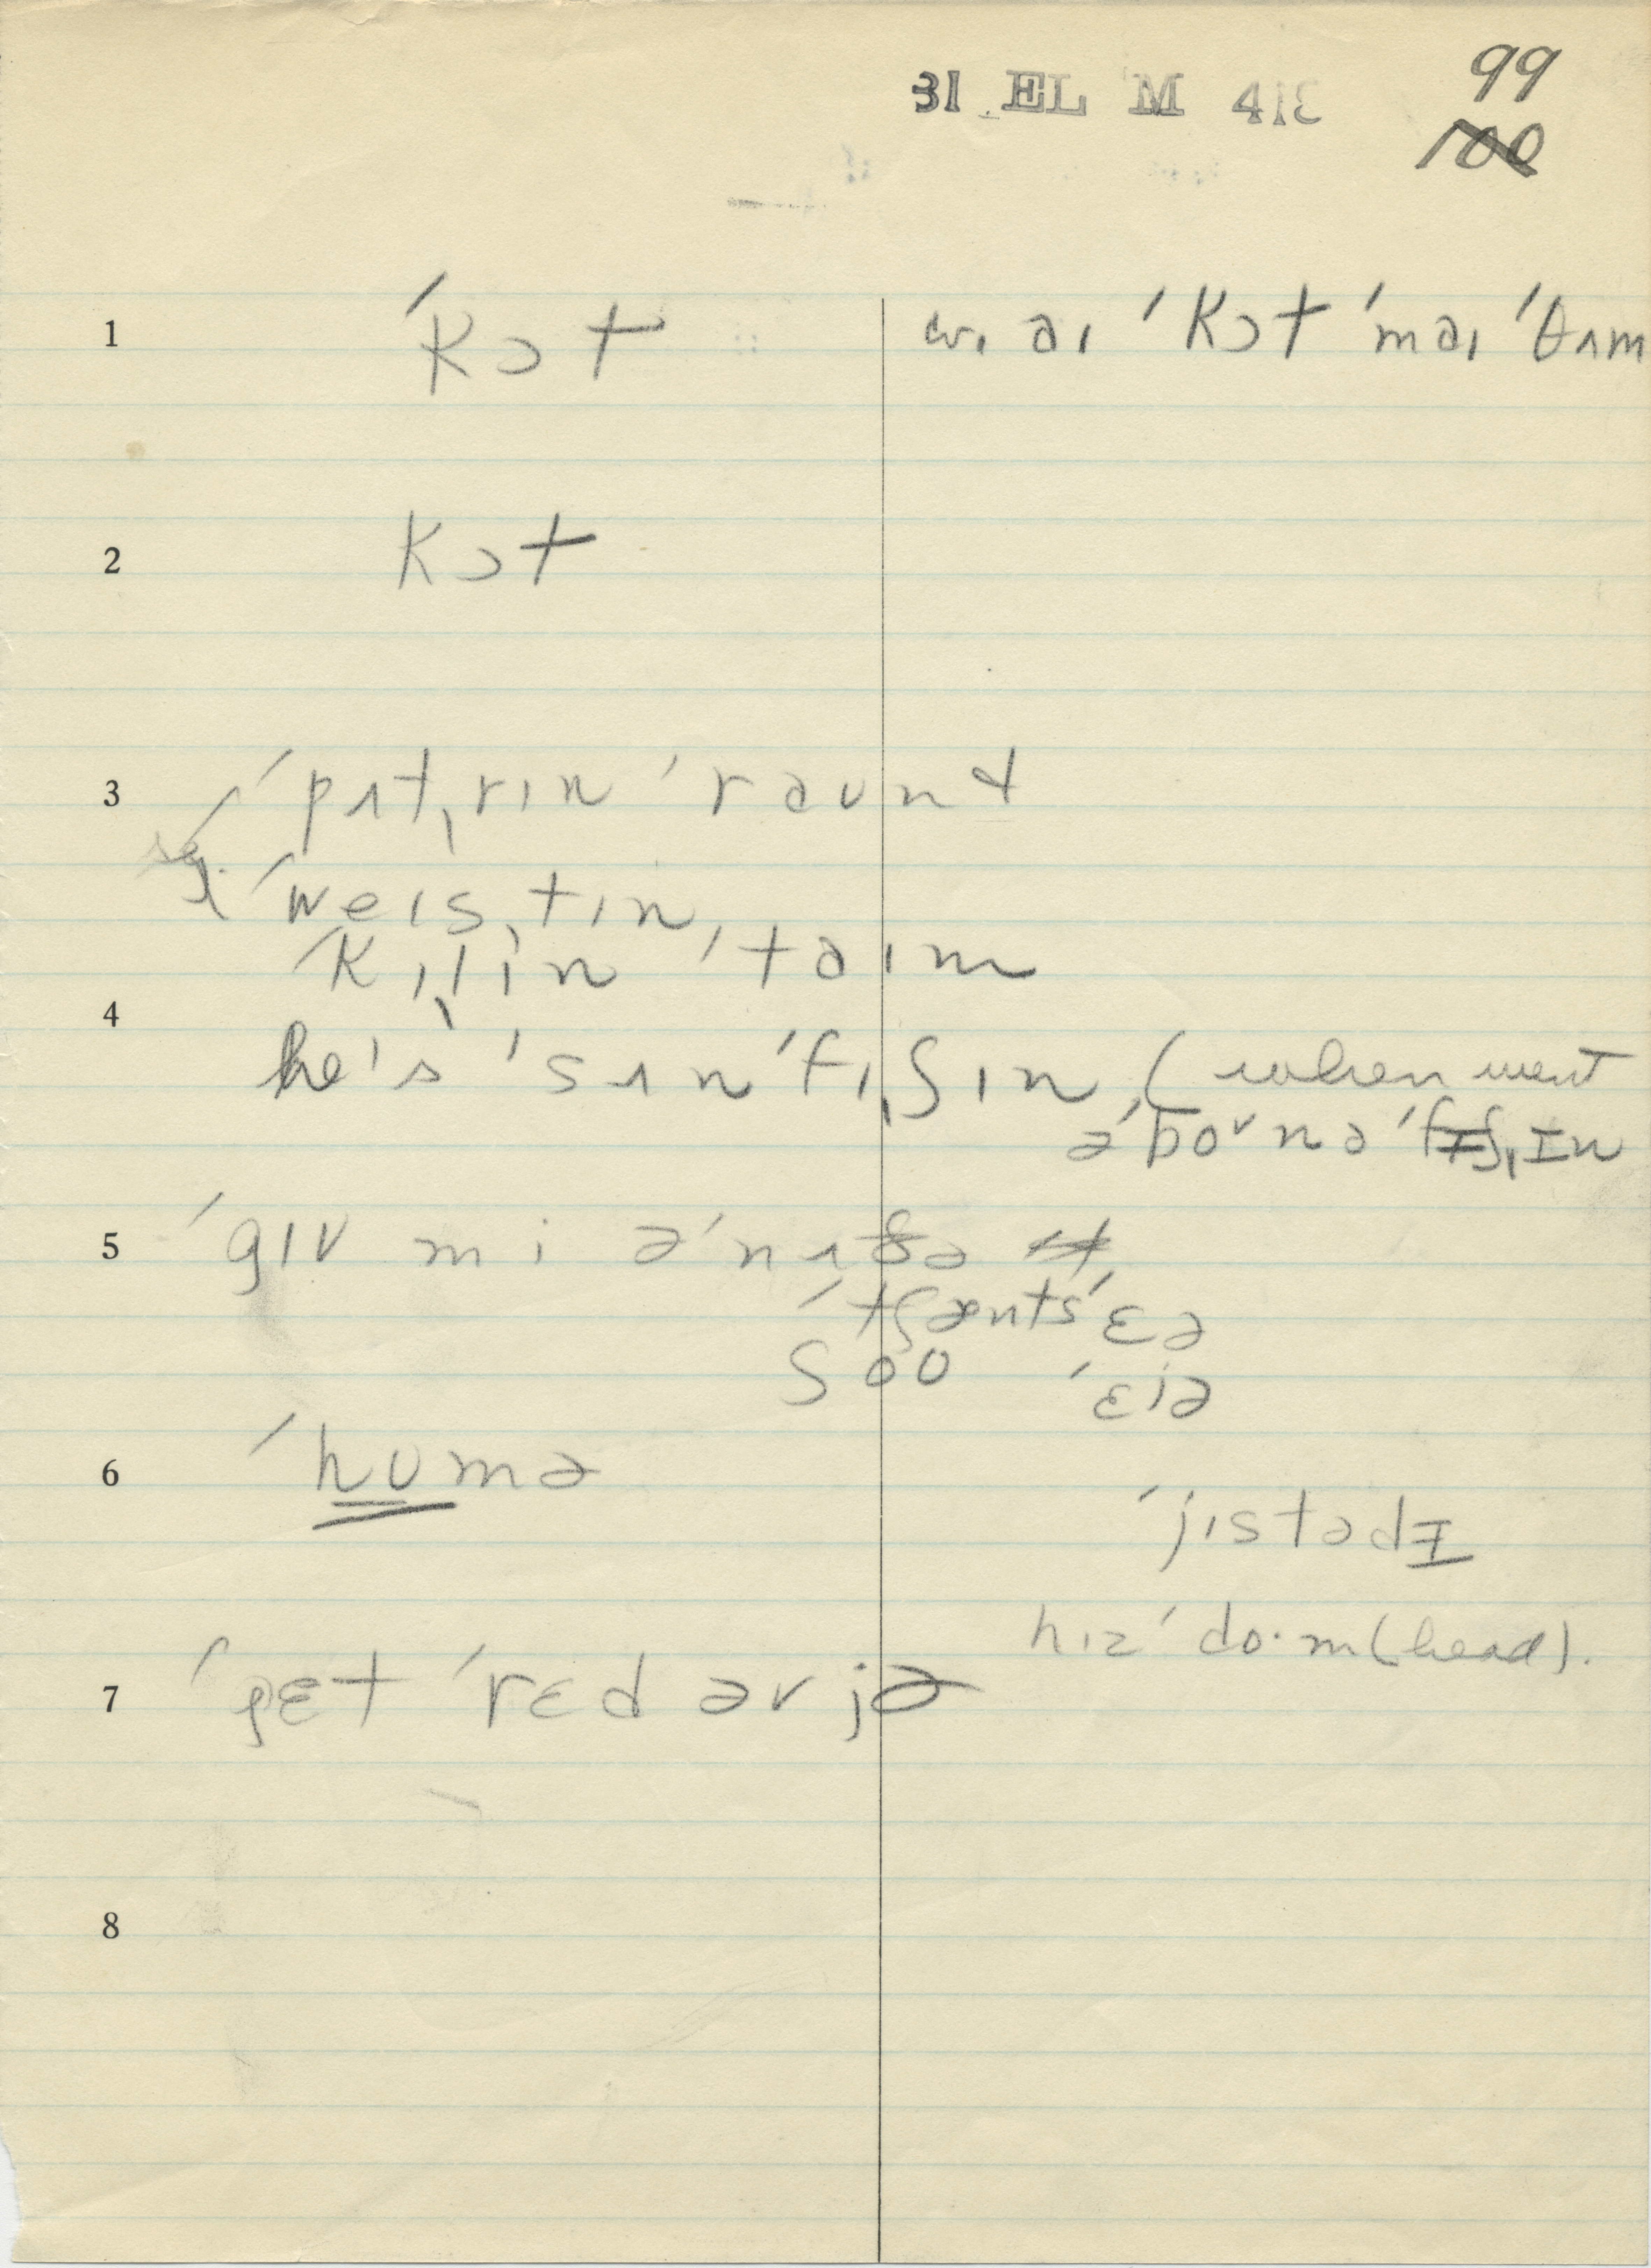 31 EL M 418
99
100
1 ˈkɔt wɪ aɪ ˈkɔt ˈmaɪ ˈθʌm
2 kɔt
3 ˈpʌtˌrɪn ˈraʊnd
ˈweɪsˌtɪn,
ˈkɪlˌɪn ˈtaɪm
4
he's ˈsʌn ˈfɪˌʃɪn, (when went
əˈboʊnə ˈfɪʃˌɪn
5 ˈgɪv mi əˈnʌðə
ˈtʃænts ˈɛə
ʃoʊ ˈɛjə
6 ˈhumə
ˈjɪstədɪ
hɪz ˈdo·m (head).
7 ˈpɛt ˈrɛd əv jə
8